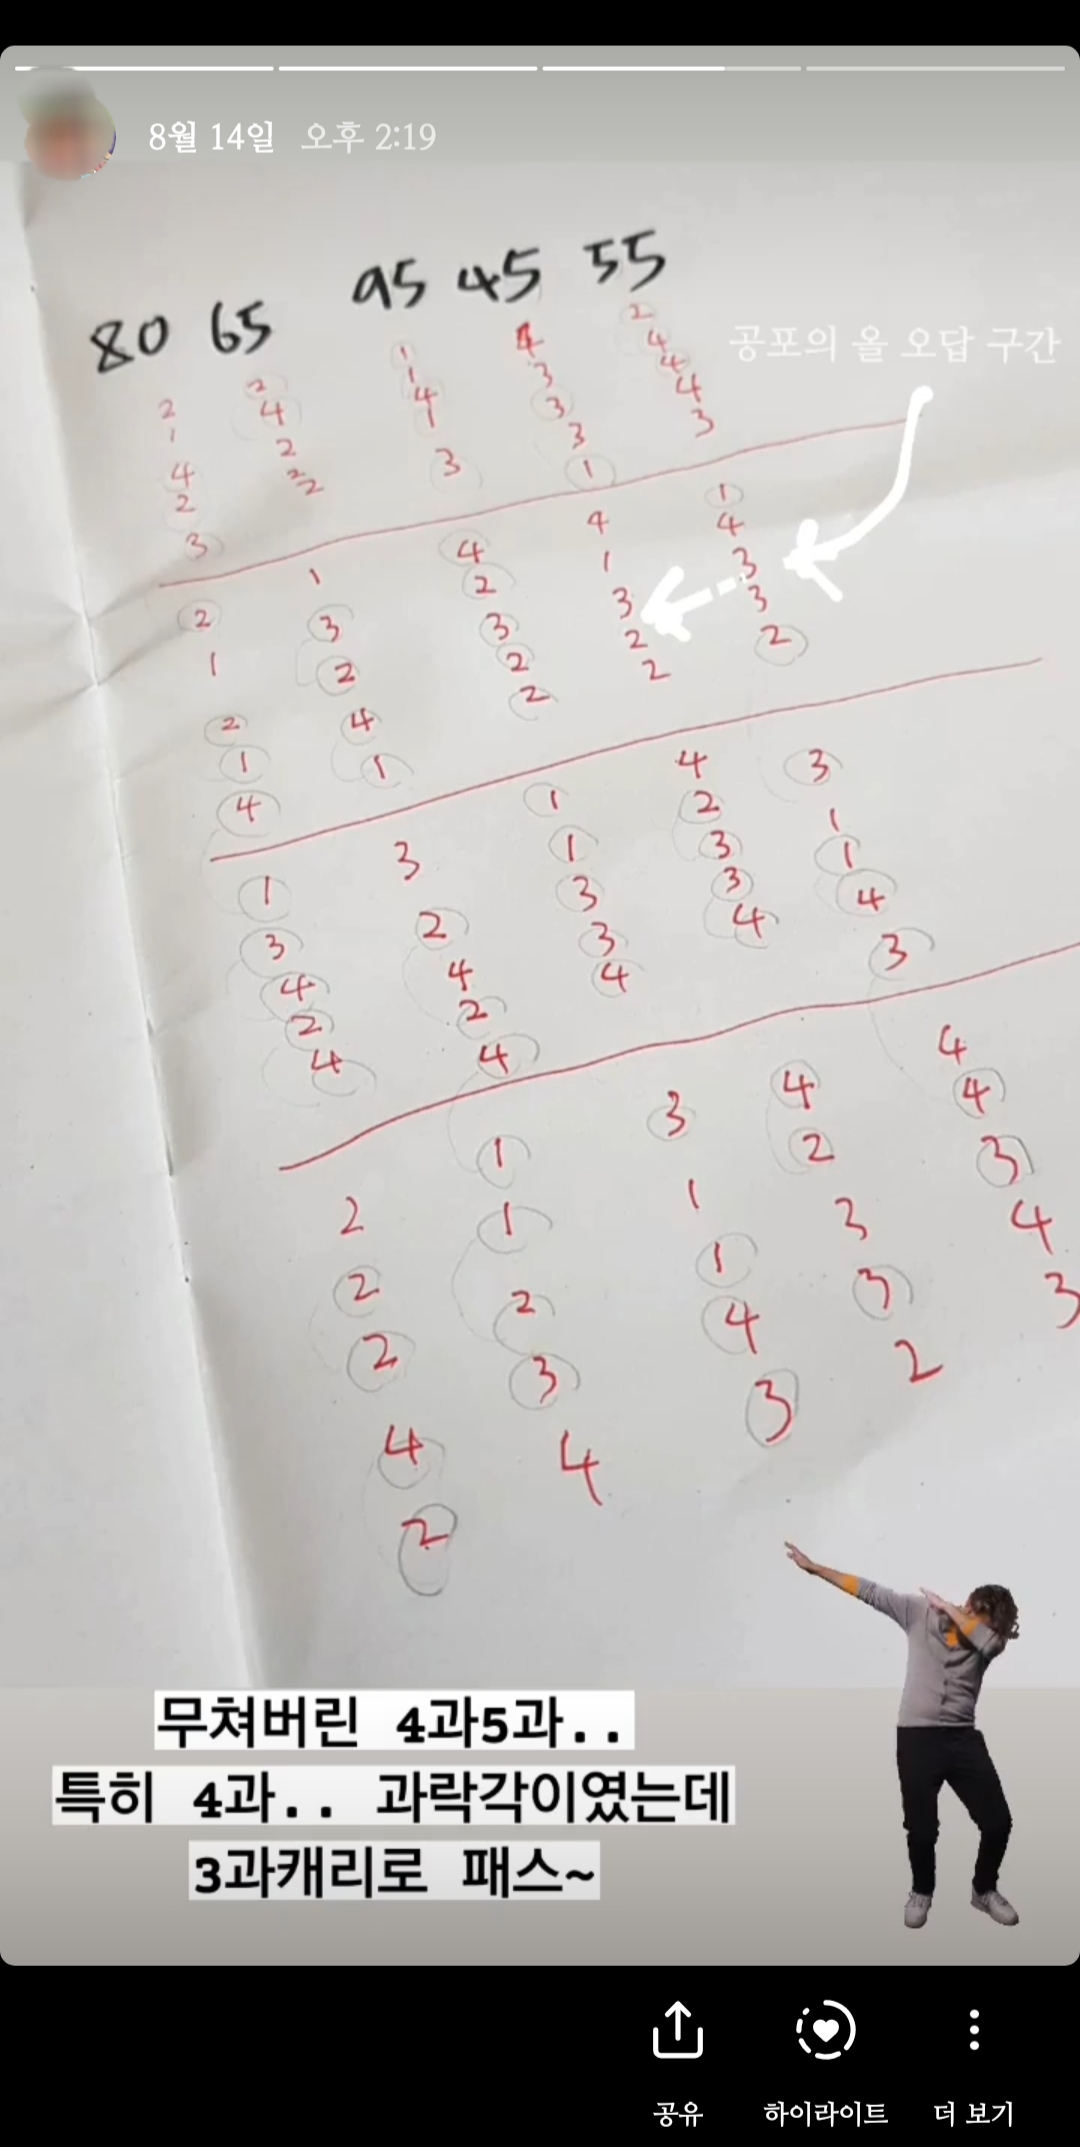 8월 14일 오후 2:19
80 65 95 45 55
공포의 올 오답 구간
2 2 1 4 2
1 4 1 3 4
4 2 4 3 4
2 2 1 3 4
3 2 3 1 3
2 1 4 4 1
1 3 2 1 4
2 2 3 3 3
1 4 2 2 3
4 1 2 2 2
1 3 1 4 3
3 2 1 2 1
4 4 3 3 1
2 2 3 3 4
4 4 4 4 3
2 1 3 4 4
2 1 1 2 4
2 2 1 3 3
4 3 4 3 4
2 4 3 2 3
무쳐버린 4과5과..
특히 4과.. 과락각이였는데
3과캐리로 패스~
공유 하이라이트 더 보기